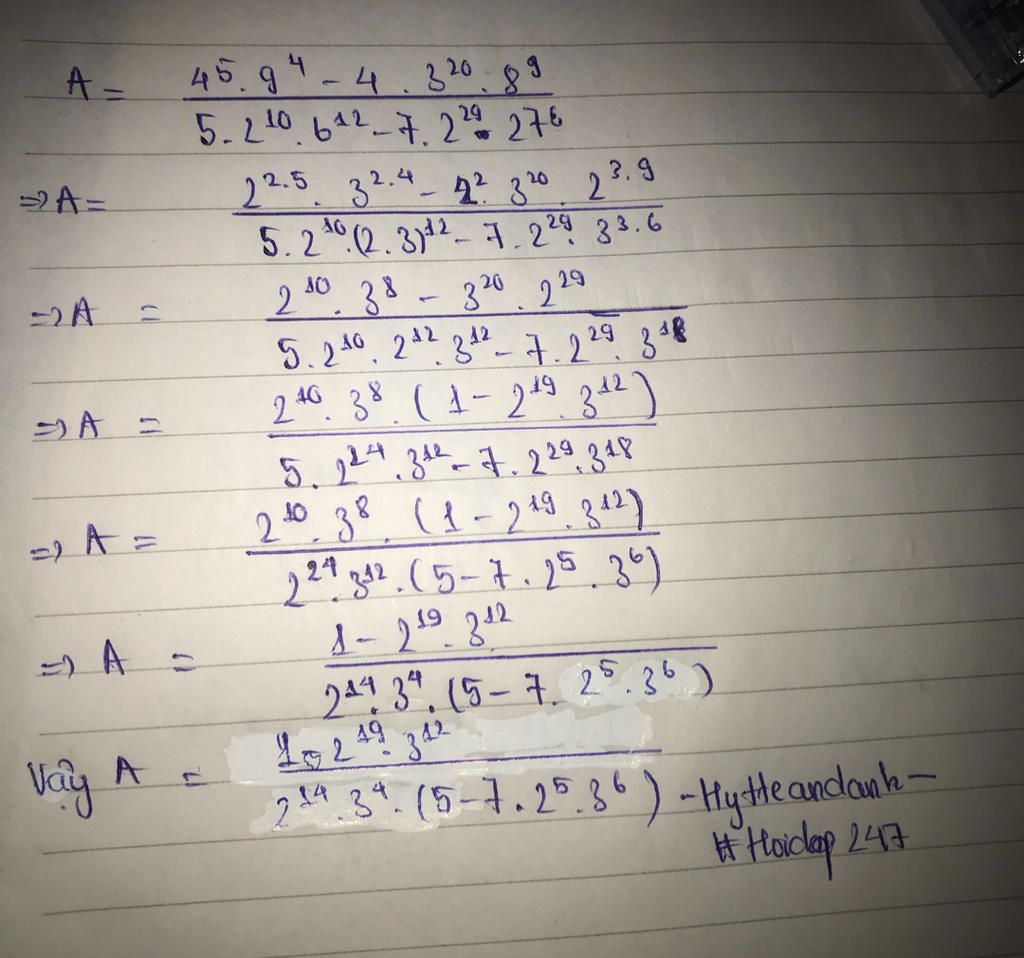 A = (4⁵. 9⁴ - 4 . 3²⁰ . 8⁹) / (5. 2¹⁰ . 6¹² - 7. 2²⁹ . 27⁶)
=> A = (2^2.5 . 3^2.4 - 2². 3²⁰ . 2^3.9) / (5. 2¹⁰.(2. 3)¹² - 7. 2²⁹. 3^3.6)
=> A = (2¹⁰ . 3⁸ - 3²⁰ . 2²⁹) / (5. 2¹⁰ . 2¹² . 3¹² - 7. 2²⁹ . 3¹⁸)
=> A = (2¹⁰ . 3⁸ . (1 - 2¹⁹ . 3¹²)) / (5. 2²⁴ . 3¹² - 7. 2²⁹. 3¹⁸)
=> A = (2¹⁰ . 3⁸ . (1 - 2¹⁹ . 3¹²)) / (2²⁴. 3¹² . (5 - 7. 2⁵ . 3⁶))
=> A = (1 - 2¹⁹ . 3¹²) / (2¹⁴. 3⁴. (5 - 7. 2⁵ . 3⁶))
Vậy A = (1 - 2¹⁹ . 3¹²) / (2¹⁴ . 3⁴. (5 - 7 . 2⁵ . 3⁶)) - Hytteandank -
# Hoidap 247